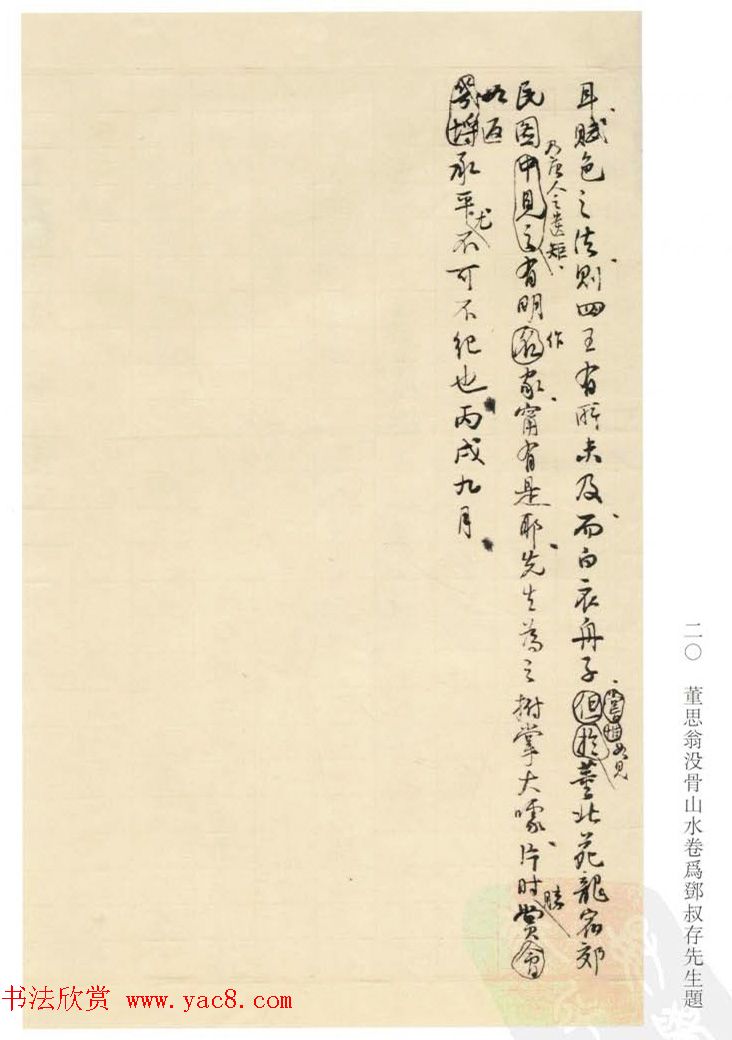 耳賦色之法則四王有所未及而白衣舟子但於董北苑龍宿郊
如見
民圖中見之有明翁家甯有是耶先生為之拊掌大噱片时賞會
乃唐人之遺矩
作
勝
如返
承平不可不紀也丙戌九月
尤
二〇 董思翁没骨山水卷爲鄧叔存先生題
书法欣赏 www.yac8.com